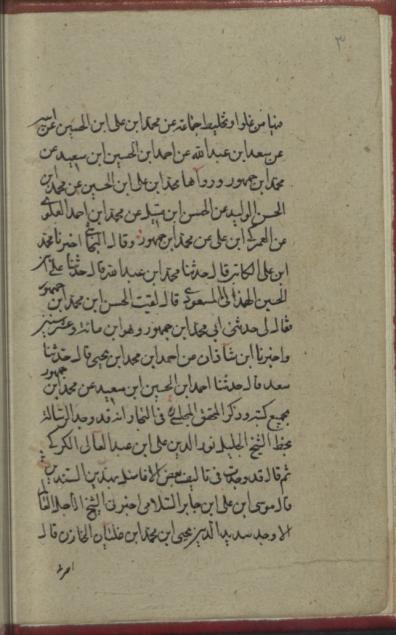 ٣
منها من غلو او تخليط جماعة عن محمد ابن على ابن الحسين عن ابيه
عن سعد ابن عبد الله عن احمد ابن الحسين ابن سعيد عن
محمد ابن جمهور ورواها محمد ابن على ابن الحسين عن محمد ابن
الحسن الوليد عن الحسن ابن متيل عن محمد ابن احمد العلوى
عن العمركى ابن على عن محمد ابن جمهور وقال النجاشى اخبرنا محمد
ابن على الكاتب قال حدثنا محمد ابن عبد الله قال حدثنا على ابن
الحسين الهذلى المسعودى قال لقيت الحسن ابن محمد ابن جمهور
فقال لى حدثنى ابى محمد ابن جمهور وهو ابن مائة وعشر سنين
واخبرنا ابن شاذان عن احمد ابن محمد ابن يحيى قال حدثنا
سعد قال حدثنا احمد ابن الحسين ابن سعيد عن محمد ابن جمهور
بجميع كتبه وذكر المحقق المجلسى فى البحار انه قد وجد الرسالة
بخط الشيخ الجليل نور الدين على ابن عبد العالى الكركى
ثم قال قد وجدت فى تاليف بعض الافاضل بهذين السندين
قال موسى ابن على ابن جابر السلامى اخبرنى الشيخ الاجل العالم
الاوحد سديد الدين يحيى ابن محمد ابن علبان الخازن قال